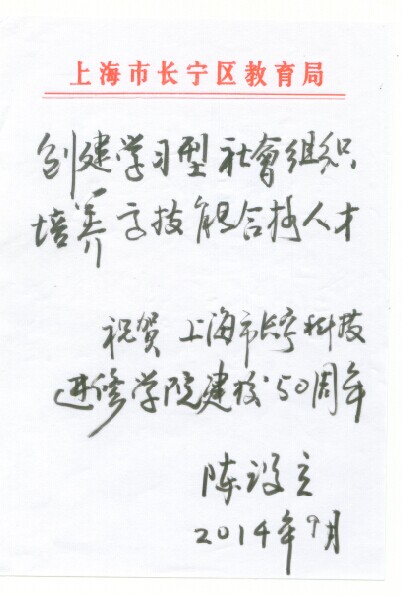 上海市长宁区教育局
创建学习型社會组织
培养高技能合格人才
祝贺上海市长宁科技
进修学院建校50周年
陈设立
2014年9月